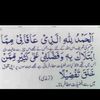 اَلْحَمْدُ لِلّٰهِ الَّذِیْ عَافَانِیْ مِمَّا
ابْتَلَاكَ بِهٖ وَفَضَّلَنِیْ عَلٰی كَثِیْرٍ مِّمَّنْ
خَلَقَ تَفْضِیْلًا